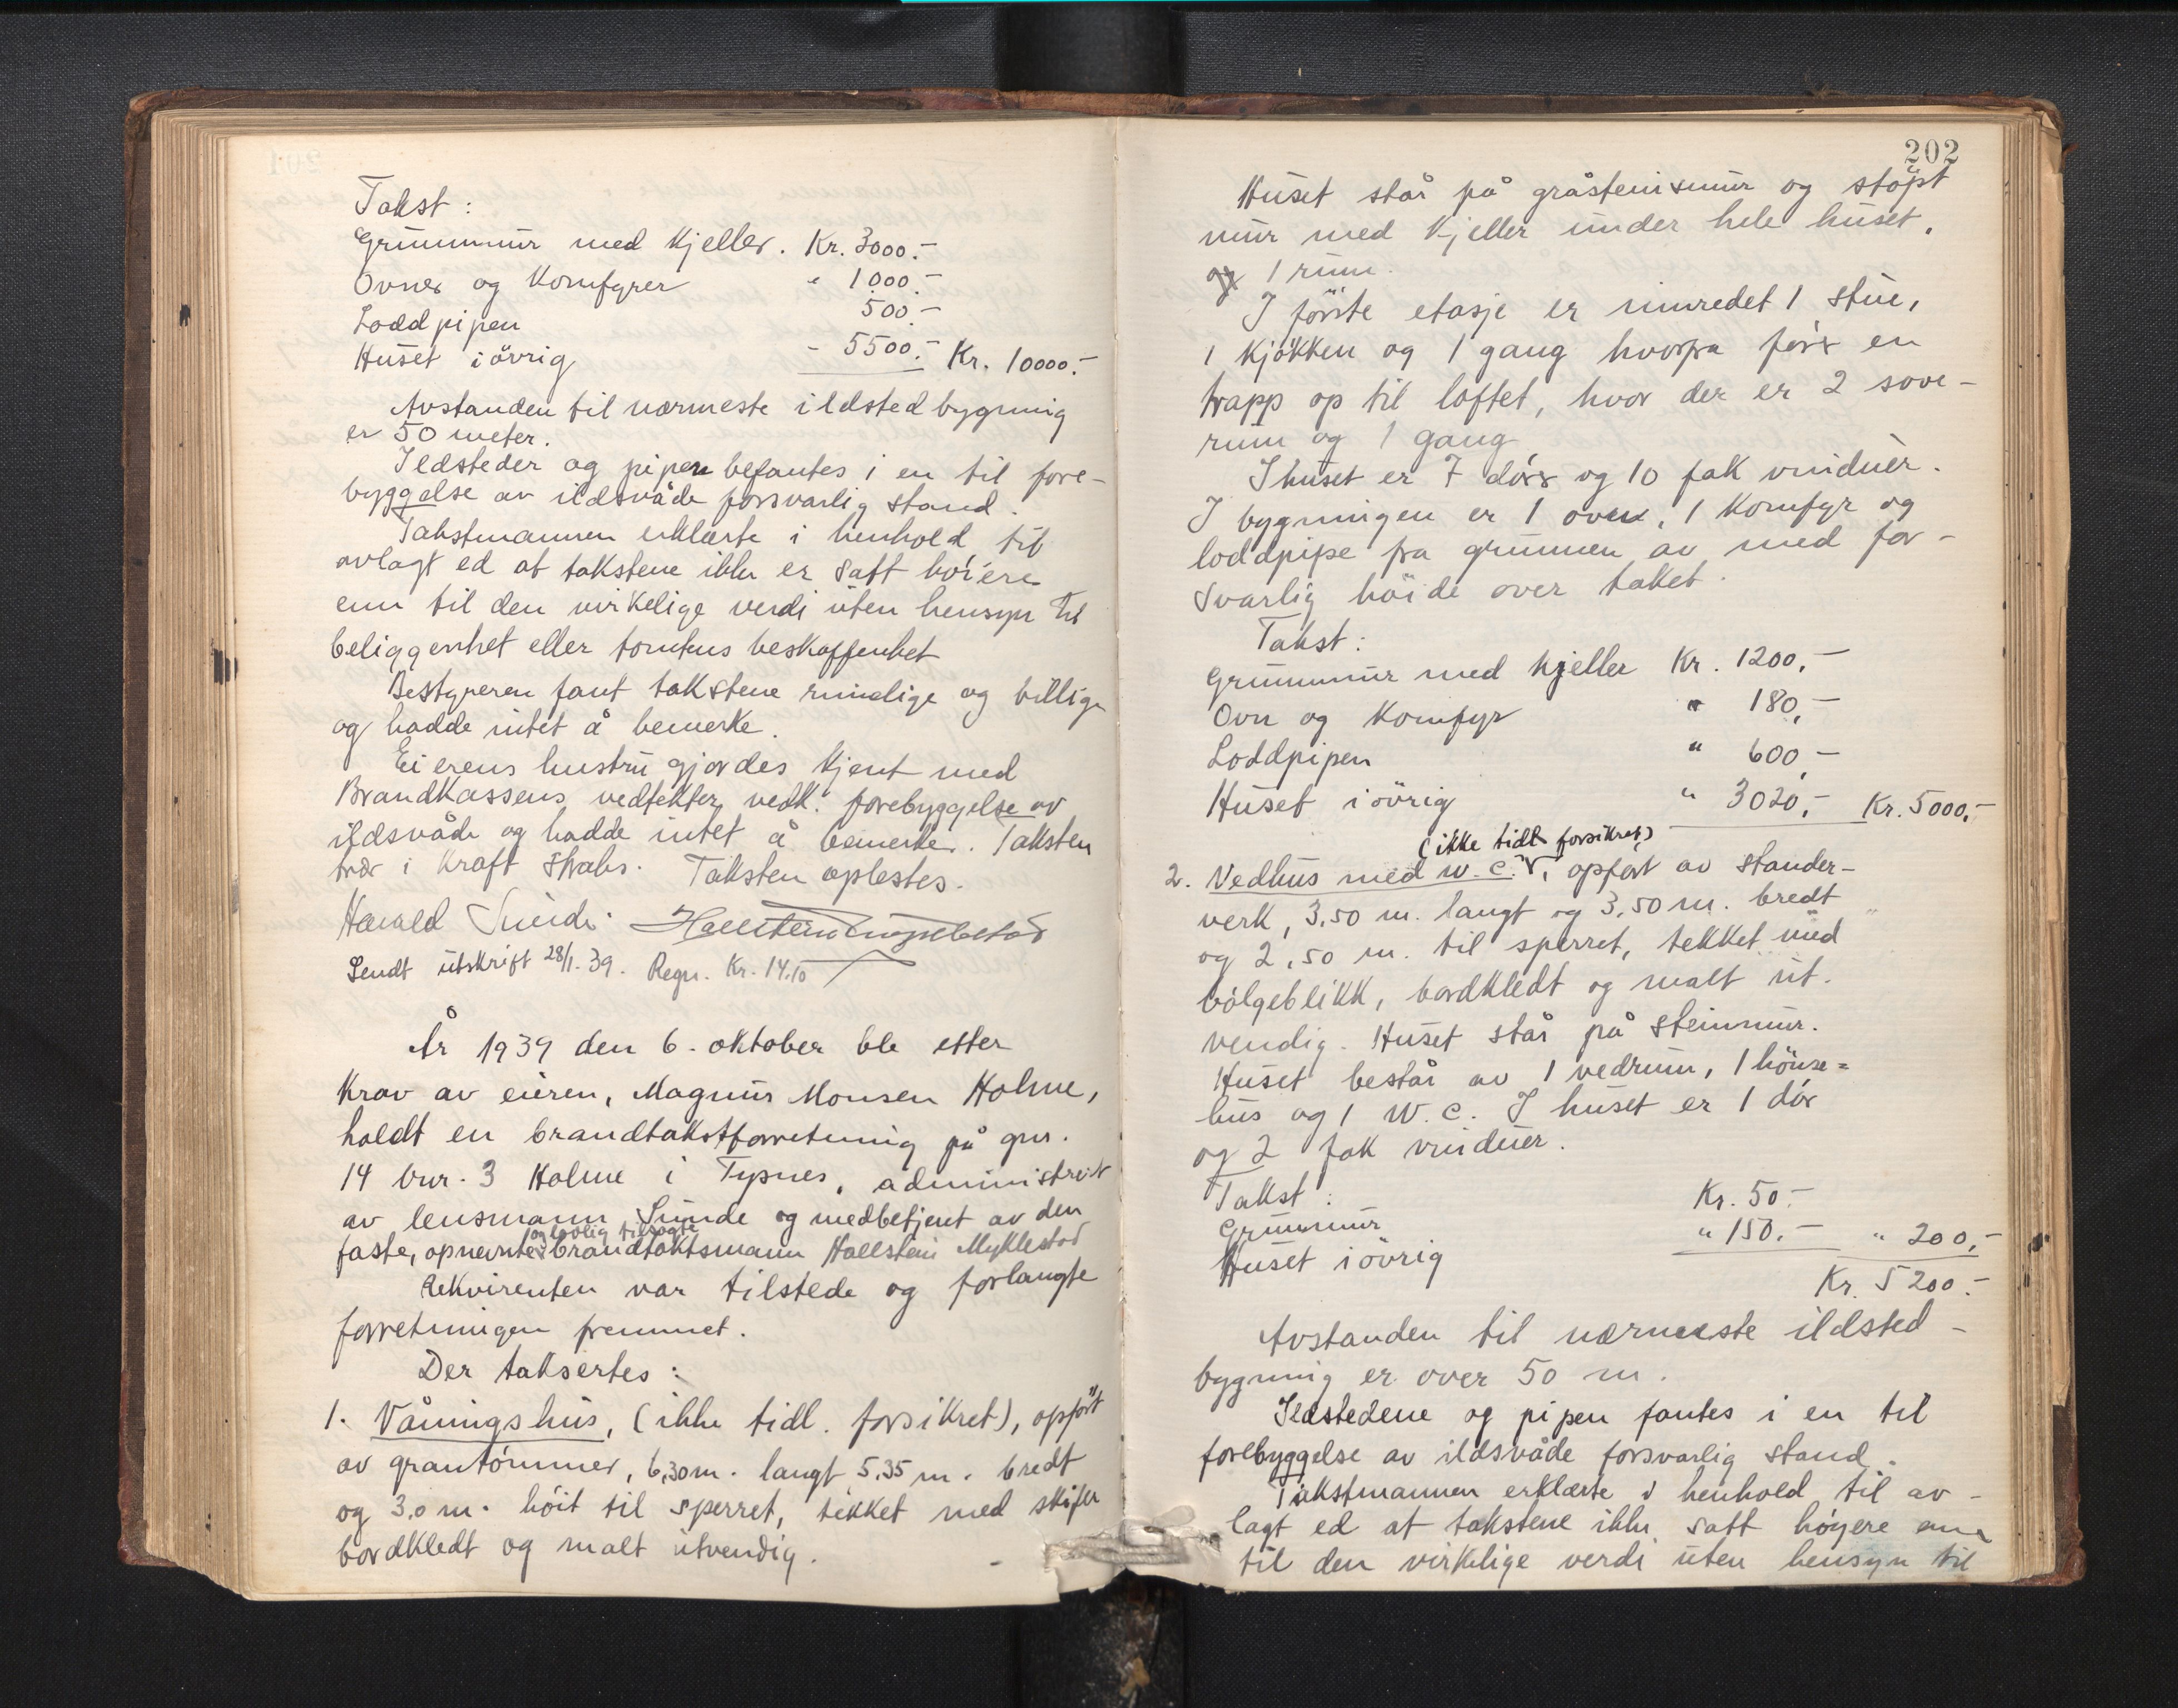 Takst:
Grunnmur med kjeller. Kr. 3000.-
Ovner og komfyrer " 1000.-
Loddpipen 500.-
Huset i övrig - 5500.- Kr. 10000.-
Avstanden til nærmeste ildsted bygning
er 50 meter.
Ildsteder og piper befantes i en til fore-
byggelse av ildsvåde forsvarlig stand.
Takstmannen erklærte i henhold til
avlagt ed at takstene ikke er satt höiere
enn til den virkelige verdi uten hensyn til
beliggenhet eller tomtens beskaffenhet
Bestyreren fant takstene rimelige og billige
og hadde intet å bemerke.
Eierens hustru gjordes kjent med
Brandkassens vedtekter vedk. forebyggelse av
ildsvåde og hadde intet å bemerke. Taksten
trær i kraft straks. Taksten oplestes.
Harald Sunde. Hallstein Myklestad
Sendt utskrift 28/1. 39. Regn. Kr. 14.10
År 1939 den 6. oktober ble etter
krav av eieren, Magnus Monsen Holme,
holdt en brandtakstforretning på gnr.
14 bnr. 3 Holme i Tysnes, administrert
av lensmann Sunde og medbetjent av den
og lovlig tilsagte
faste, opnevnte brandtakstmann Hallstein Myklestad
Rekvirenten var tilstede og forlangte
forretningen fremmet.
Der taksertes:
1. Våningshus, (ikke tidl. forsikret), opfört
av grantömmer, 6,30 m. langt 5,35 m. bredt
og 3,0 m. höit til sperret, tekket med skifer
bordkledt og malt utvendig.
202
Huset står på gråsteinsmur og støpt
mur med kjeller under hele huset,
og 1 rum.
I förste etasje er innredet 1 stue,
1 kjökken og 1 gang hvorfra förer en
trapp op til loftet, hvor der er 2 sove-
rum og 1 gang
I huset er 7 dörer og 10 fak vinduer.
I bygningen er 1 oven, 1 komfyr og
loddpipe fra grunnen av med for-
svarlig höide over taket.
Takst:
Grunnmur med kjeller Kr. 1200,-
Ovn og komfyr " 180,-
Loddpipen " 600,-
Huset i övrig " 3020,- Kr. 5000,-
(ikke tidl. forsikret)
2. Vedhus med W.C., opfört av stander-
verk, 3,50 m. langt og 3,50 m. bredt
og 2,50 m. til sperret, tekket med
bölgeblikk, bordkledt og malt ut-
vendig. Huset står på steinmur.
Huset består av 1 vedrum, 1 hönse=
hus og 1 W.C. I huset er 1 dör
og 2 fak vinduer.
Takst:
Grunnmur Kr. 50.-
Huset i övrig " 150.- " 200,-
Kr. 5200.-
Avstanden til nærmeste ildsted-
bygning er over 50 m.
Ildstedene og pipen fantes i en til
forebyggelse av ildsvåde forsvarlig stand.
Takstmannen erklærte i henhold til av-
lagt ed at takstene ikke satt høyere enn
til den virkelige verdi uten hensyn til